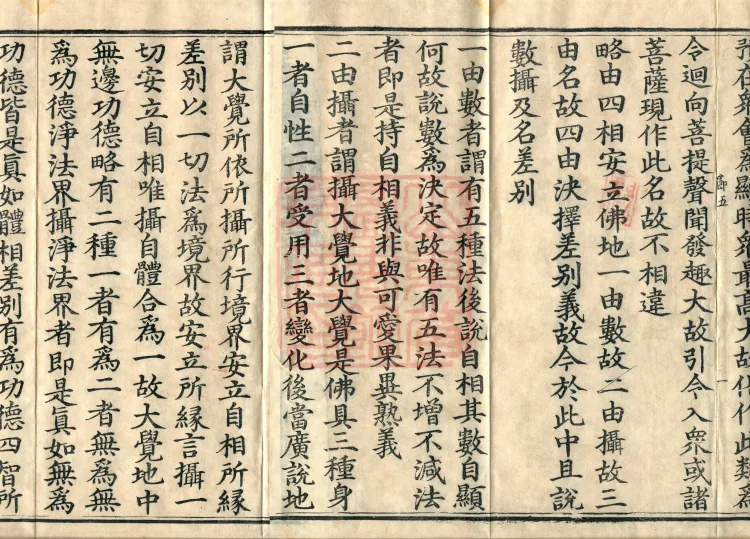 令迴向菩提聲聞發趣大故引令入衆或諸
菩薩現作此名故不相違
略由四相安立佛地一由數故二由攝故三
由名故四由決擇差別義故今於此中且說
數攝及名差別
一由數者謂有五種法後說自相其數自顯
何故說數爲決定故唯有五法不增不減法
者即是持自相義非與可愛果異熟義
二由攝者謂攝大覺地大覺是佛具三種身
一者自性二者受用三者變化後當廣說地
謂大覺所依所攝所行境界安立自相所緣
差別以一切法爲境界故安立所緣言攝一
切安立自相唯攝自體合爲一故大覺地中
無邊功德略有二種一者有爲二者無爲無
爲功德淨法界攝淨法界者即是眞如無爲
功德皆是眞如體相差別有爲功德四智所